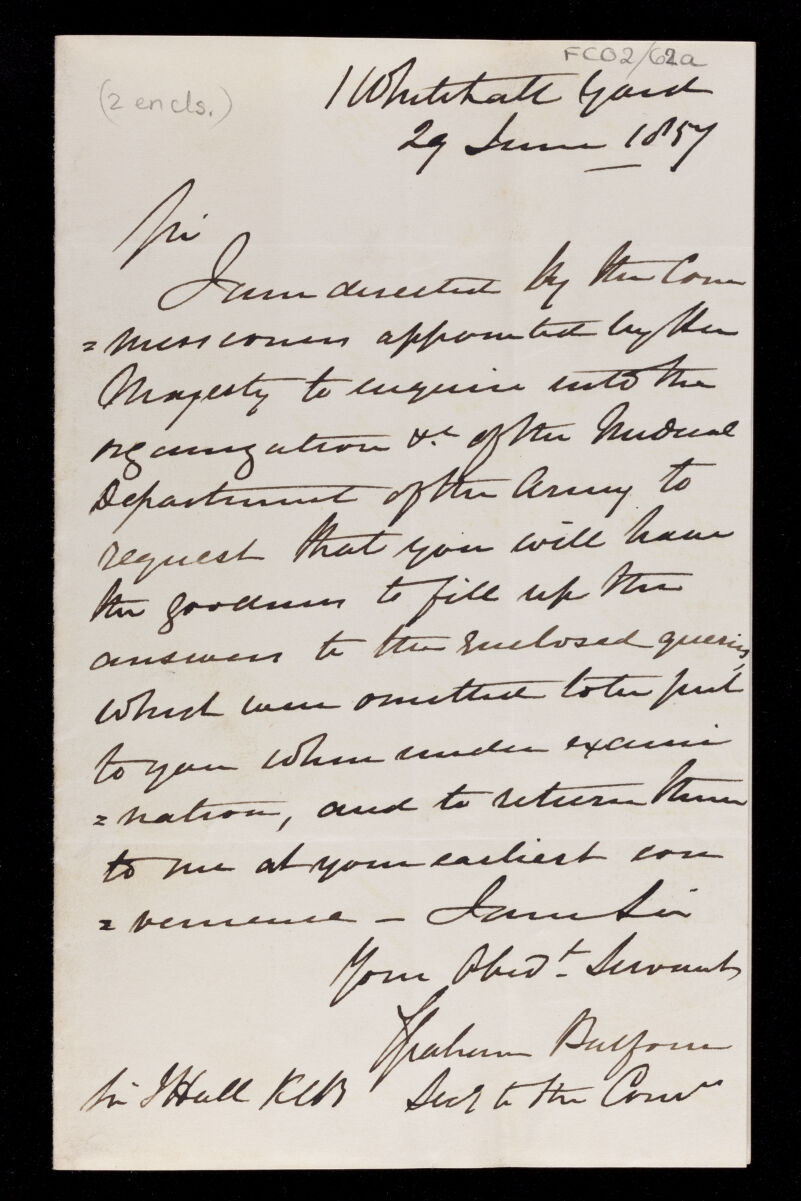 FCO2/62a
(2 encls.)
1 Whitehall Yard
29 June 1857
Sir
I am directed by the Com
=missioners appointed by Her
Majesty to enquire into the
organization &c of the Medical
Department of the Army to
request that you will have
the goodness to fill up the
answers to the enclosed queries,
which were omitted to be put
to you when under exami
=nation, and to return them
to me at your earliest con
=venience - I am Sir
Your Obedt. Servant
T Graham Balfour
Sir J Hall KCB Secy to the Comrs